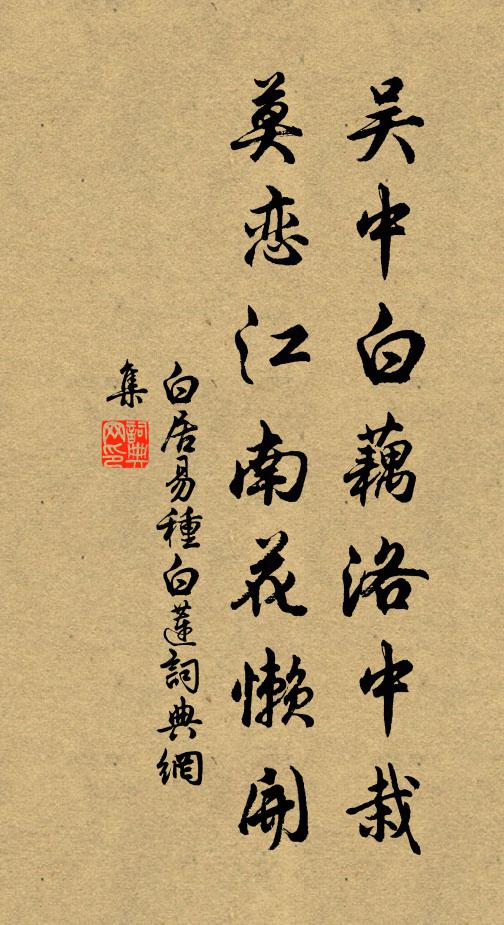 吴中白藕洛中栽
莫恋江南花懒开
白居易種白蓮詞典網
集
詞典網印